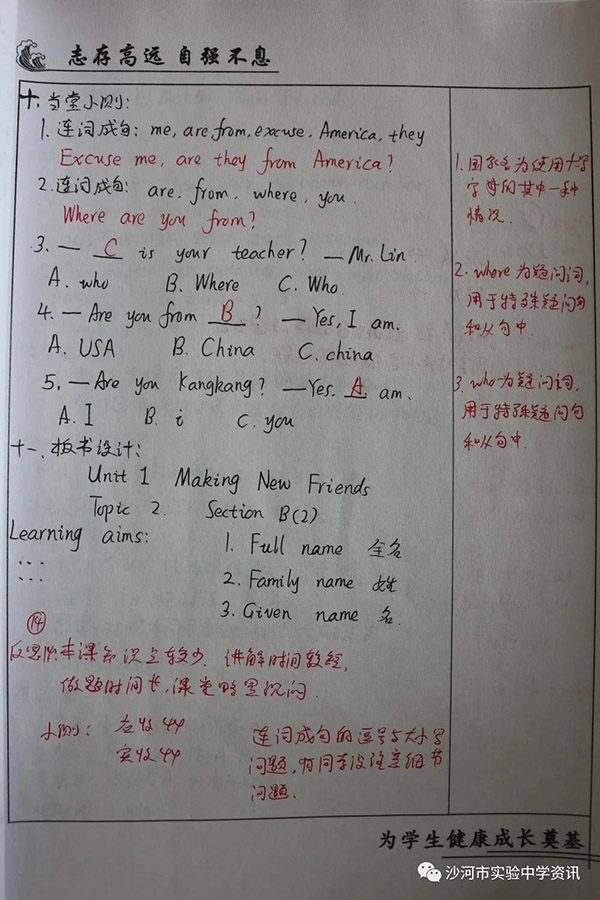 志存高远 自强不息
十.当堂小测:
1.连词成句: me, are from, excuse, America, they
Excuse me, are they from America?
2.连词成句: are, from, where, you.
Where are you from?
3. — C is your teacher? — Mr. Lin.
A. who B. Where C. Who.
4. — Are you from B ? — Yes, I am.
A. USA B. China C. china
5. — Are you Kangkang? — Yes. A am.
A. I B. i C. you
十一、板书设计:
Unit 1 Making New Friends
Topic 2. Section B(2)
Learning aims:
1. Full name 全名
2. Family name 姓
3. Given name 名.
...
...
⑭
反思:本课知识点较少,讲解时间较短,
做题时间长,课堂略显沉闷.
小测: 应收44
实收44
连词成句的逗号与大小写
问题,有同学没注意细节
问题.
1.国家名为使用大写
字母的其中一种
情况.
2. where为疑问词,
用于特殊疑问句
和从句中.
3. who为疑问词,
用于特殊疑问句
和从句中.
为学生健康成长奠基
沙河市实验中学资讯